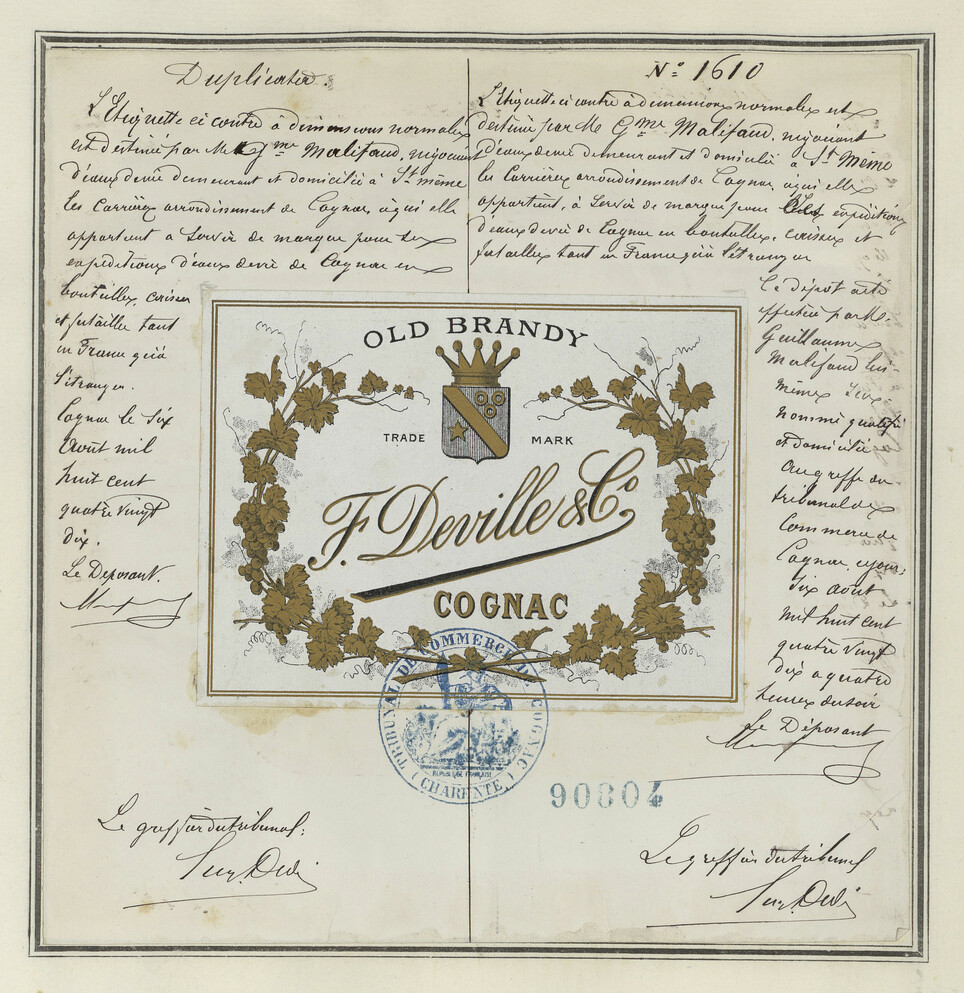 Duplicata.
L'Etiquette ci contre à dimensions normales
est destinée par Mr Gme Malifaud, négociant
d'eaux de vie demeurant et domicilié à St même
les Carrières arrondissement de Cognac, à qui elle
appartient a servir de marque pour ses
expeditions d'eaux de vie de Cognac en
bouteilles, caisses
et futailles tant
en France qu'à
l'étranger.
Cognac le Six
Août mil
huit cent
quatre vingt
dix.
Le Déposant.
N° 1610
L'Etiquette ci contre à dimensions normales est
destinée par Mr Gme Malifaud, négociant
d'eaux de vie demeurant et domicilié à St Même
les Carrières arrondissement de Cognac, à qui elle
appartient, à servir de marque pour ses expéditions
d'eaux de vie de Cognac en bouteilles, caisses et
futailles tant en France qu'à l'étranger
Le dépôt a été
effectué par Mr
Guillaume
Malifaud lui-
même sus
nommé qualifié
et domicilié
au greffe du
tribunal de
Commerce de
Cognac, ce jour
Six août
mil huit cent
quatre vingt
dix a quatre
heures du soir
Le Déposant
OLD BRANDY
TRADE MARK
F. Deville & Co
COGNAC
TRIBUNAL DE COMMERCE DE COGNAC
(CHARENTE)
REPUBLIQUE FRANÇAISE
90804
Le greffier du tribunal:
Le greffier du tribunal